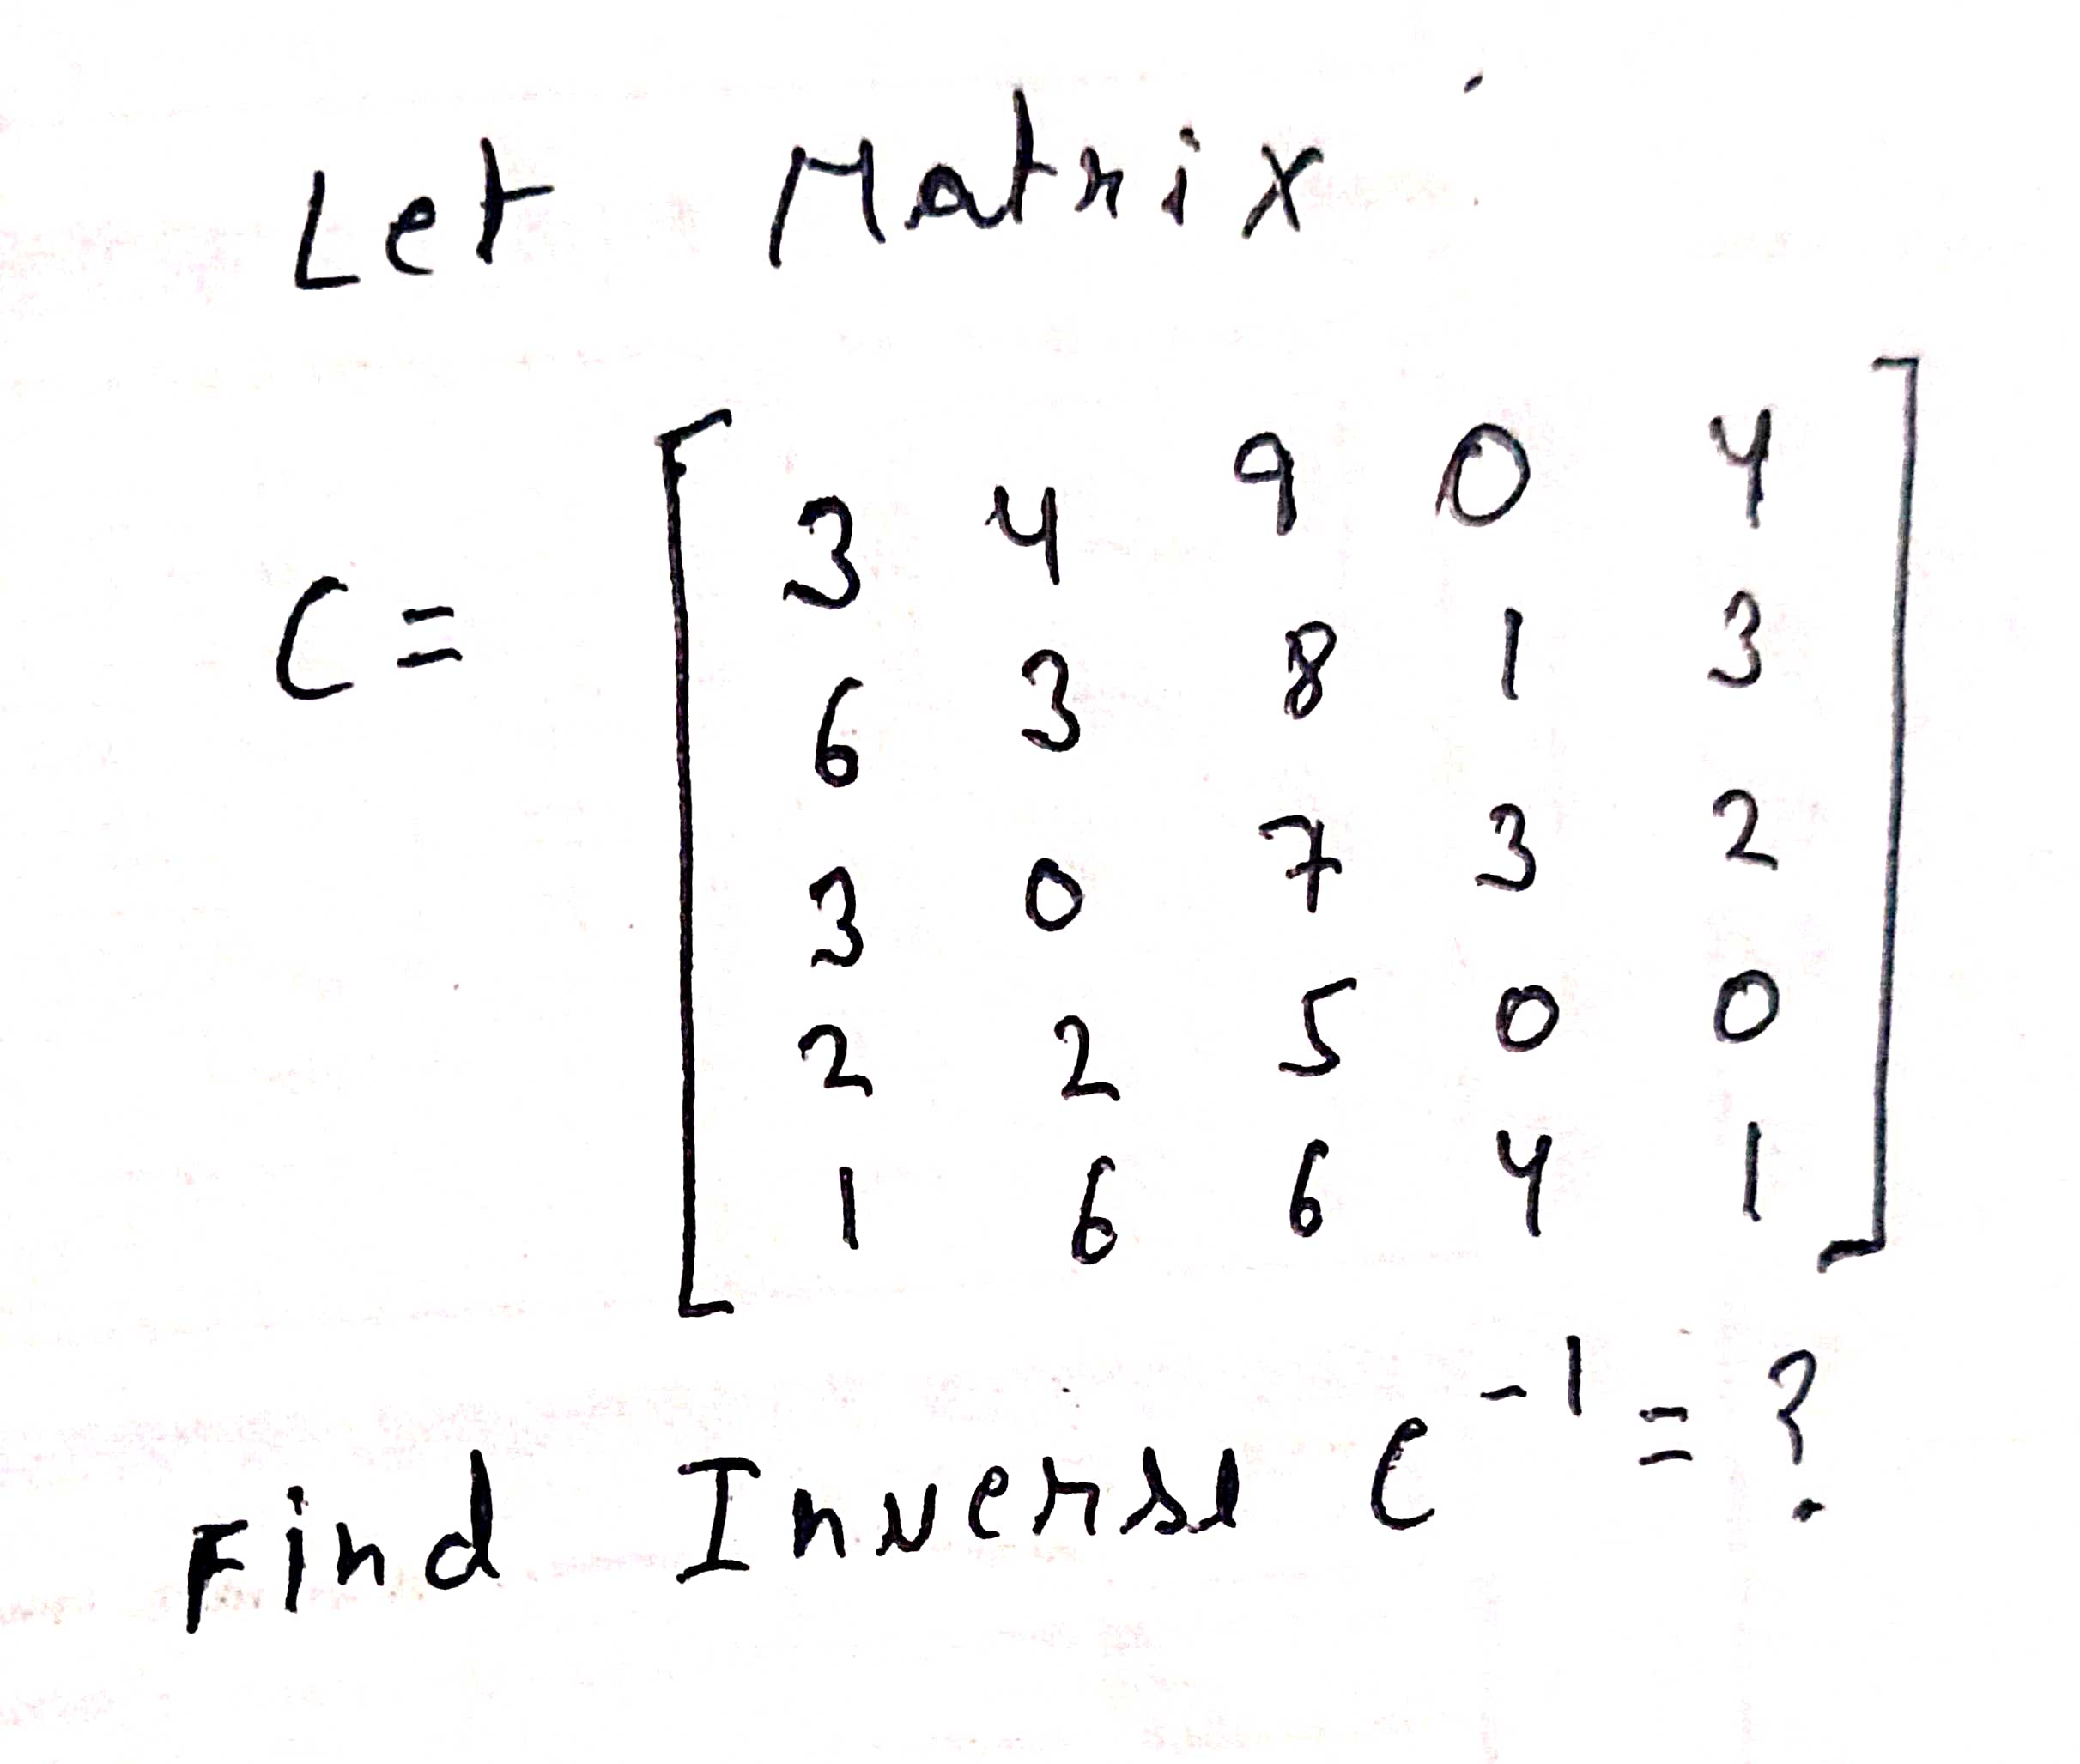 Let Matrix
C = [ 3 4 9 0 4
6 3 8 1 3
3 0 7 3 2
2 2 5 0 0
1 6 6 4 1 ]
Find Inverse C⁻¹ = ?